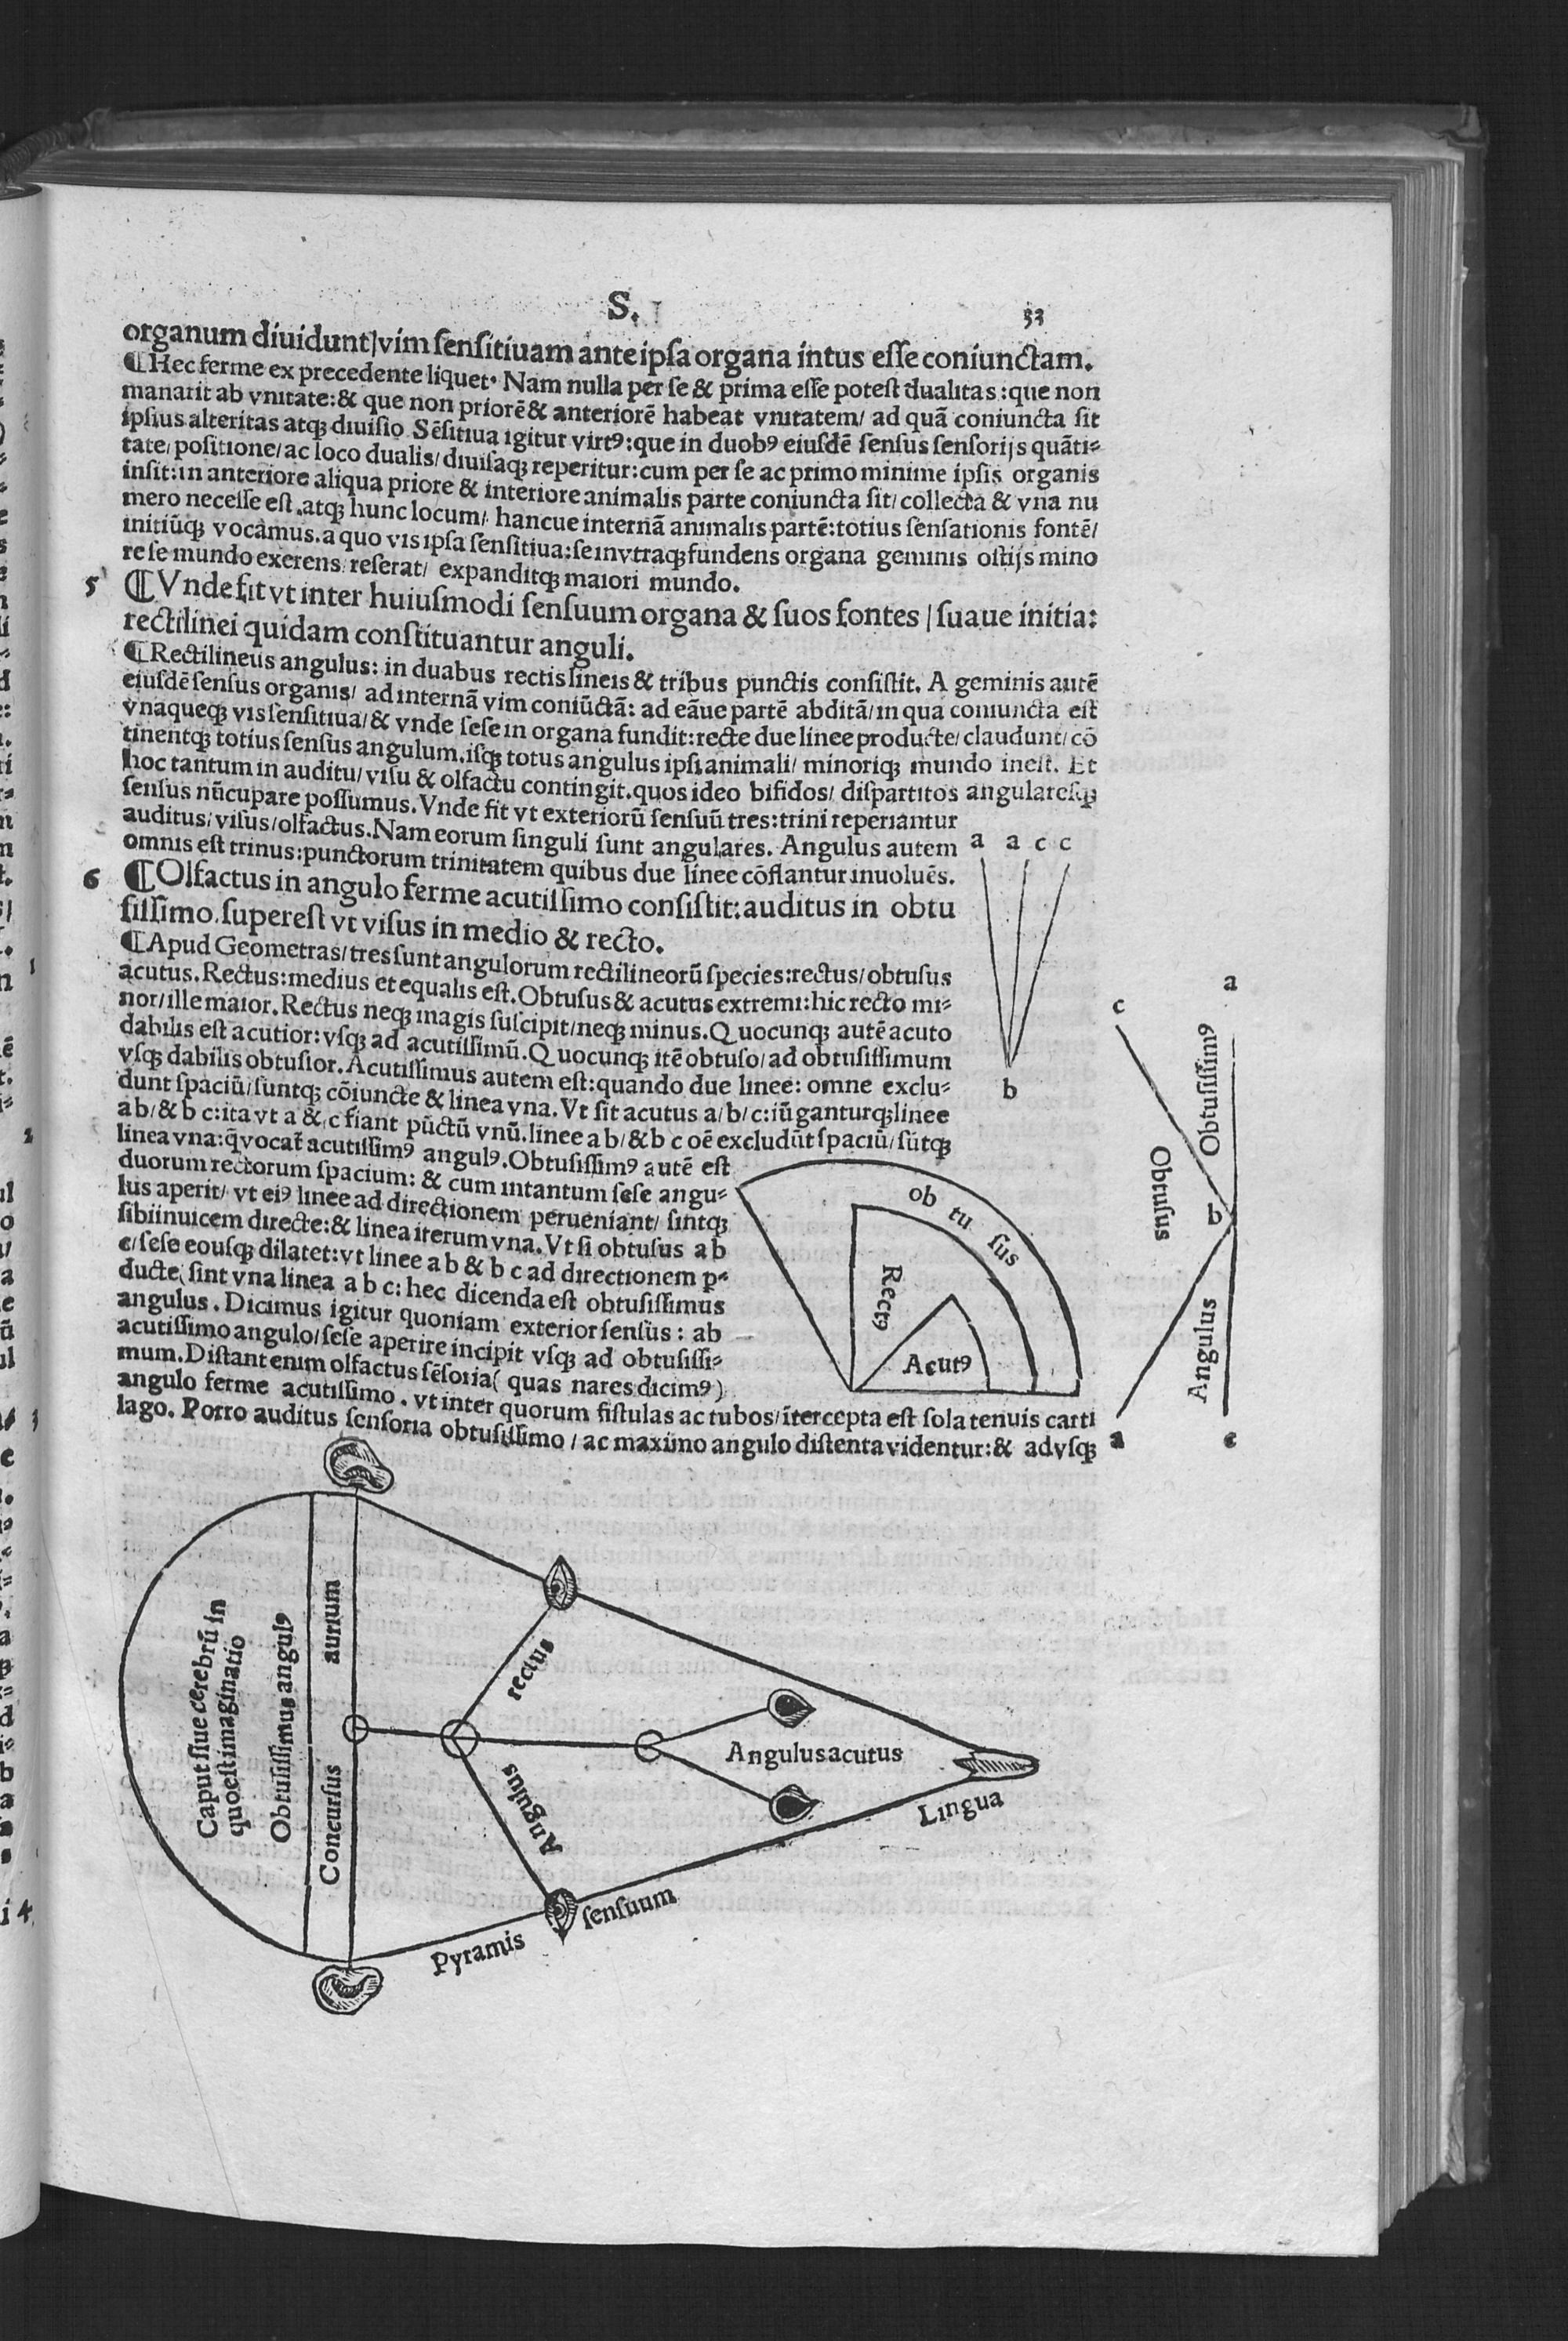 S. 53
organum diuidunt/vim ſenſitiuam ante ipſa organa intus eſſe coniunctam.
¶Hec ferme ex precedente liquet. Nam nulla per ſe & prima eſſe poteſt dualitas:que non
manarit ab vnitate:& que non priorē & anteriorē habeat vnitatem/ ad quā coniuncta ſit
ipſius alteritas atqꝫ diuiſio. Sēſitiua igitur virtꝰ:que in duobꝰ eiuſdē ſenſus ſenſorijs quāti⸗
tate/ poſitione/ ac loco dualis/ diuiſaqꝫ reperitur:cum per ſe ac primo minime ipſis organis
inſit:in anteriore aliqua priore & interiore animalis parte coniuncta ſit/ collecta & vna nu
mero neceſſe eſt. atqꝫ hunc locum/ hancue internā animalis partē:totius ſenſationis fontē/
initiūqꝫ vocamus. a quo vis ipſa ſenſitiua:ſe in vtraqꝫ fundens organa geminis oſtijs mino
re ſe mundo exerens/ reſerat/ expanditqꝫ maiori mundo.
5 ¶Vnde fit vt inter huiuſmodi ſenſuum organa & ſuos fontes / ſuaue initia:
rectilinei quidam conſtituantur anguli.
¶Rectilineus angulus: in duabus rectis lineis & tribus punctis conſiſtit. A geminis autē
eiuſdē ſenſus organis/ ad internā vim coniūctā: ad eāue partē abditā/ in qua coniuncta eſt
vnaqueqꝫ vis ſenſitiua/ & vnde ſeſe in organa fundit:recte due linee producte/ claudunt/ cō
tinentqꝫ totius ſenſus angulum. iſqꝫ totus angulus ipſi animali/ minoriqꝫ mundo ineſt. Et
hoc tantum in auditu/ viſu & olfactu contingit. quos ideo bifidos/ diſpartitos angulareſqꝫ
ſenſus nūcupare poſſumus. Vnde fit vt exteriorū ſenſuū tres:trini reperiantur
auditus/ viſus/ olfactus. Nam eorum ſinguli ſunt angulares. Angulus autem
omnis eſt trinus:punctorum trinitatem quibus due linee cōflantur inuoluēs.
6 ¶Olfactus in angulo ferme acutiſſimo conſiſtit:auditus in obtu
ſiſſimo. ſupereſt vt viſus in medio & recto.
¶Apud Geometras/ tres ſunt angulorum rectilineorū ſpecies:rectus/ obtuſus
acutus. Rectus:medius et equalis eſt. Obtuſus & acutus extremi:hic recto mi⸗
nor/ ille maior. Rectus neqꝫ magis ſuſcipit/ neqꝫ minus. Quocunqꝫ autē acuto
dabilis eſt acutior: vſqꝫ ad acutiſſimū. Quocunqꝫ itē obtuſo/ ad obtuſiſſimum
vſqꝫ dabilis obtuſior. Acutiſſimus autem eſt:quando due linee: omne exclu⸗
dunt ſpaciū/ ſuntqꝫ cōiuncte & linea vna. Vt ſit acutus a/ b/ c:iūganturqꝫ linee
a b/ & b c:ita vt a & c fiant pūctū vnū. linee a b/ & b c oē excludūt ſpaciū/ ſūtqꝫ
linea vna:q̄ vocat̄ acutiſſimꝰ angulꝰ. Obtuſiſſimꝰ autē eſt
duorum rectorum ſpacium: & cum intantum ſeſe angu⸗
lus aperit/ vt eiꝰ linee ad directionem perueniant/ ſintqꝫ
ſibiinuicem directe:& linea iterum vna. Vt ſi obtuſus a b
c/ ſeſe eouſqꝫ dilatet:vt linee a b & b c ad directionem p⸗
ducte/ ſint vna linea a b c: hec dicenda eſt obtuſiſſimus
angulus. Dicimus igitur quoniam exterior ſenſus: ab
acutiſſimo angulo/ ſeſe aperire incipit vſqꝫ ad obtuſiſſi⸗
mum. Diſtant enim olfactus ſēſoria( quas nares dicimꝰ)
angulo ferme acutiſſimo. vt inter quorum fiſtulas ac tubos/ ītercepta eſt ſola tenuis carti
lago. Porro auditus ſenſoria obtuſiſſimo / ac maximo angulo diſtenta videntur:& advſqꝫ
a a c c
b
c
a
Obtuſus
Obtuſiſſimꝰ
b
Angulus
a
c
ob tu ſus
Rectꝰ
Acutꝰ
Caput ſiue cerebrū in
quo eſt imaginatio
Obtuſiſſimus angulꝰ
Concurſus aurium
rectus
Angulus
Angulus acutus
Lingua
Pyramis ſenſuum